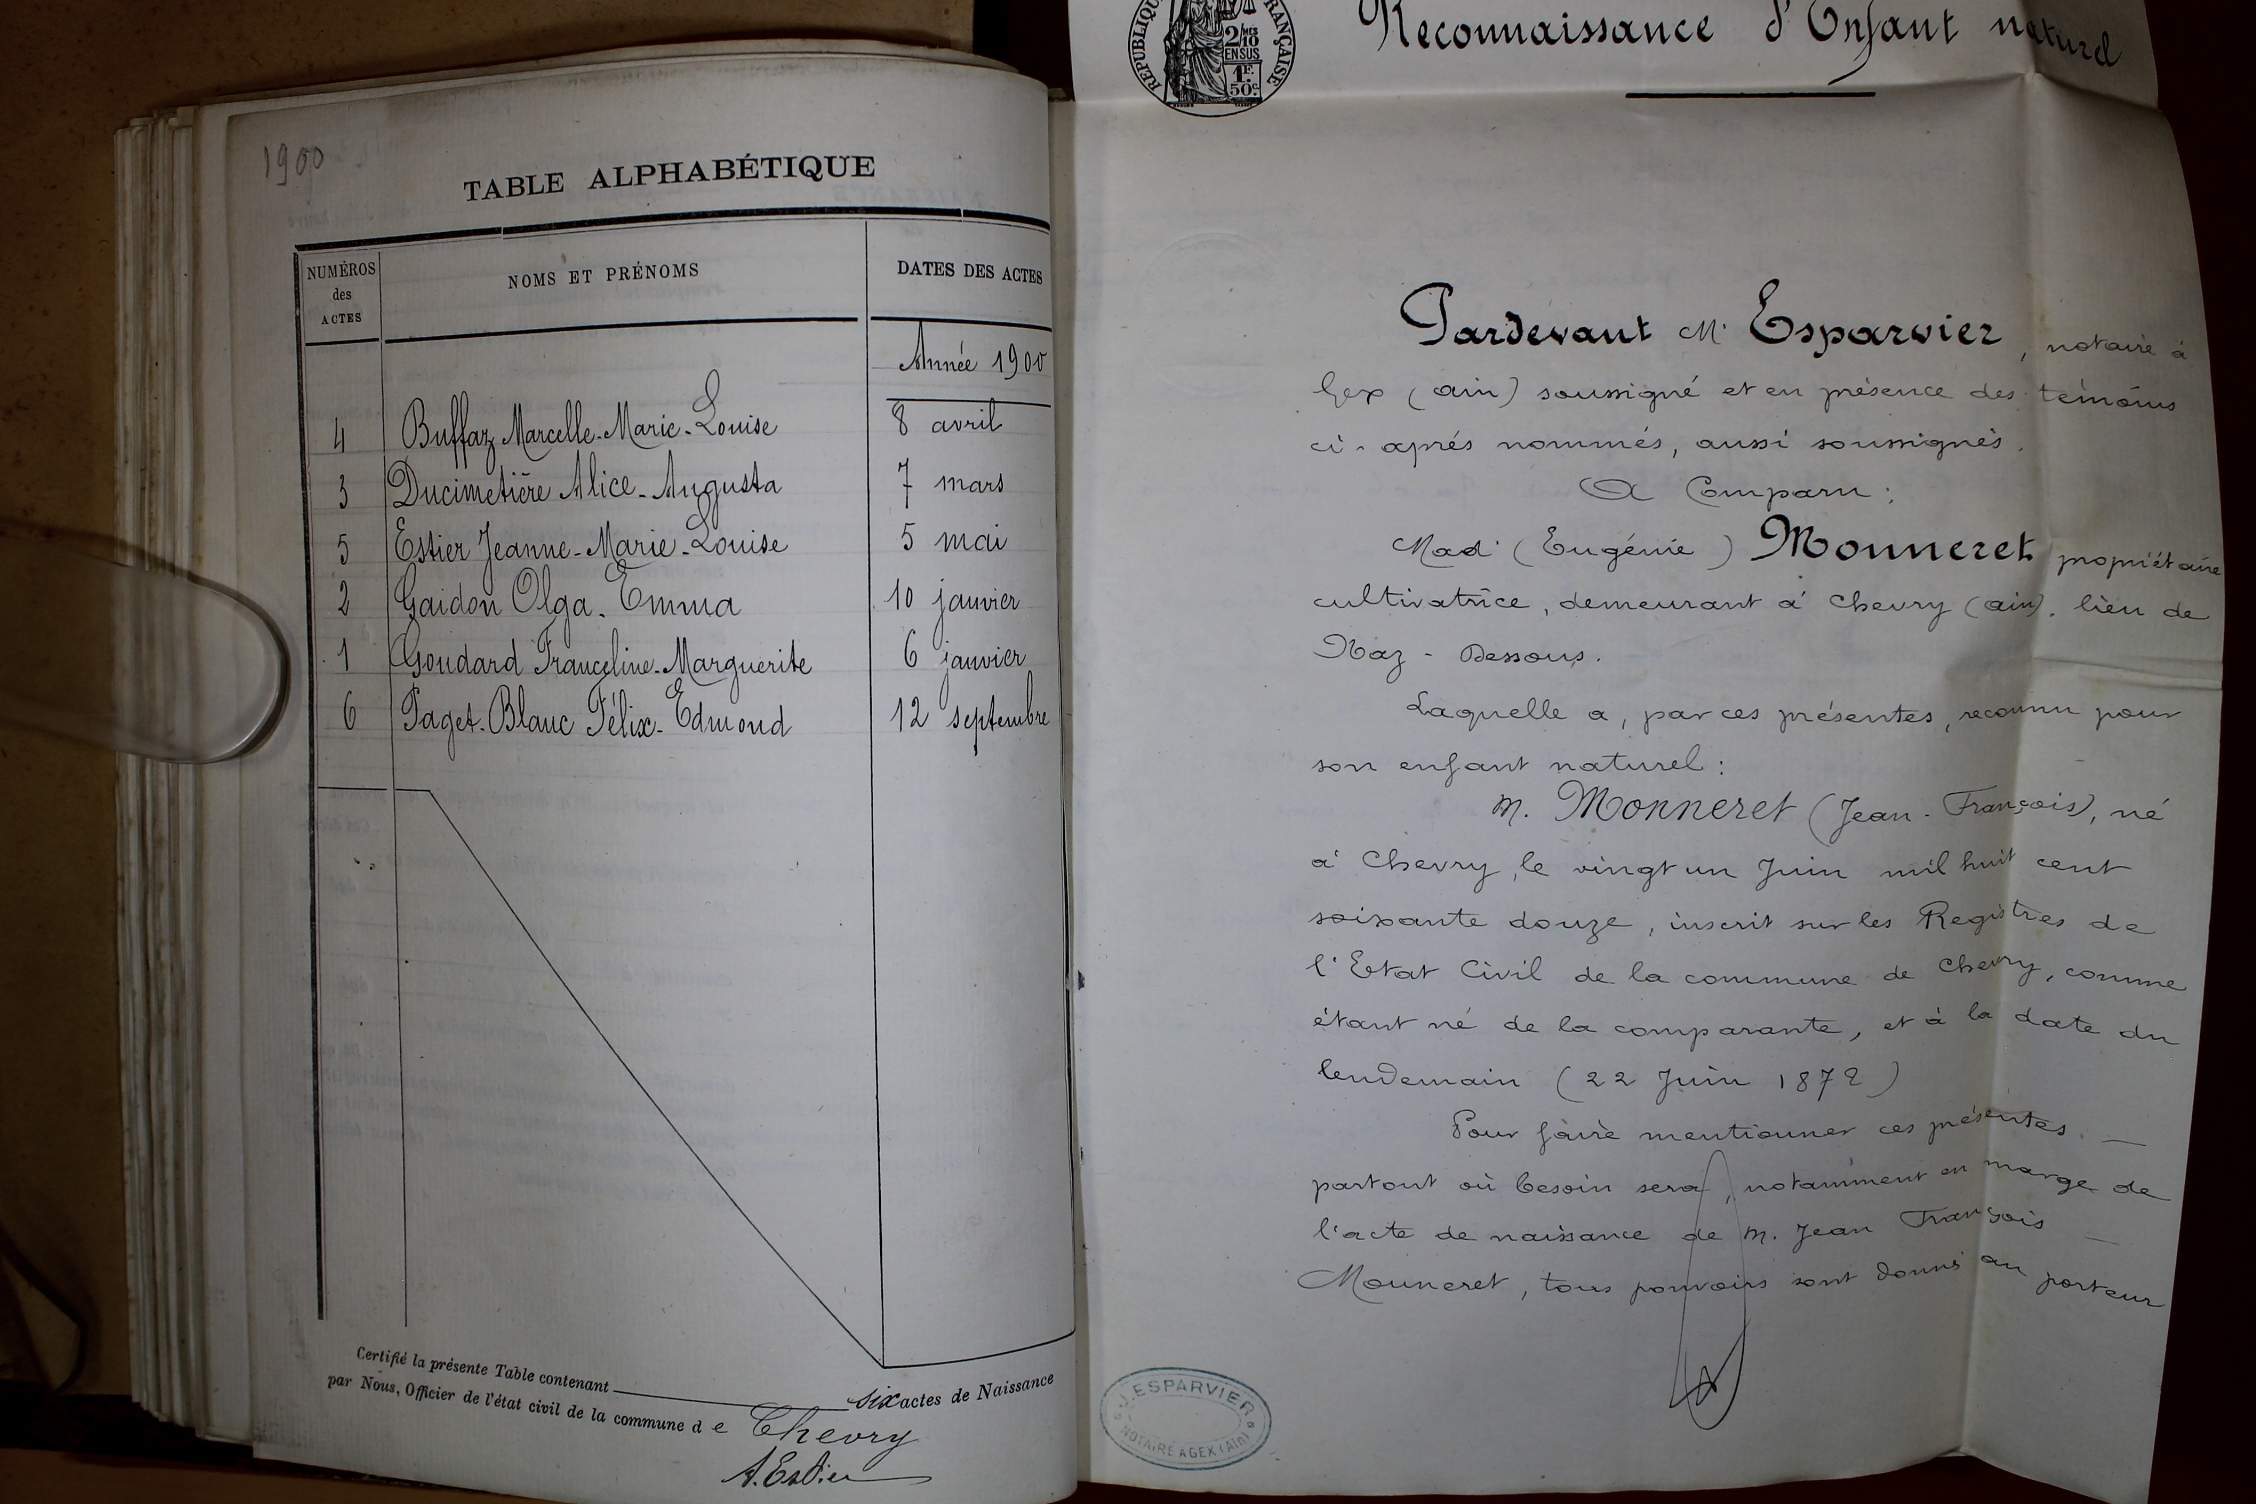 1900
TABLE ALPHABÉTIQUE
NUMÉROS
des
ACTES
NOMS ET PRÉNOMS
DATES DES ACTES
Année 1900
4 Buffaz Marcelle-Marie-Louise 8 avril
3 Ducimetière Alice-Augusta 7 mars
5 Estier Jeanne-Marie-Louise 5 mai
2 Gaidon Olga-Emma 10 janvier
1 Goudard Franceline-Marguerite 6 janvier
6 Paget-Blanc Félix-Edmond 12 septembre
Certifié la présente Table contenant six actes de Naissance
par Nous, Officier de l'état civil de la commune de Chevry
A. Estier
RÉPUBLIQUE FRANÇAISE
2/10 MES
EN SUS
1F.
50c
Reconnaissance d'Enfant naturel
Pardevant Me Esparvier, notaire à
Gex (ain) soussigné et en présence des témoins
ci-après nommés, aussi soussignés.
A Comparu:
Made (Eugénie) Monneret propriétaire
cultivatrice, demeurant à Chevry (ain). lieu de
Naz-Dessous.
Laquelle a, par ces présentes, reconnu pour
son enfant naturel:
M. Monneret (Jean-François), né
à Chevry, le vingt un Juin mil huit cent
soixante douze, inscrit sur les Registres de
l'Etat Civil de la commune de Chevry, comme
étant né de la comparante, et à la date du
lendemain (22 Juin 1872)
Pour faire mentionner ces présentes. —
partout où besoin sera, notamment en marge de
l'acte de naissance de M. Jean François —
Monneret, tous pouvoirs sont donnés au porteur
J. ESPARVIER
NOTAIRE A GEX (Ain)